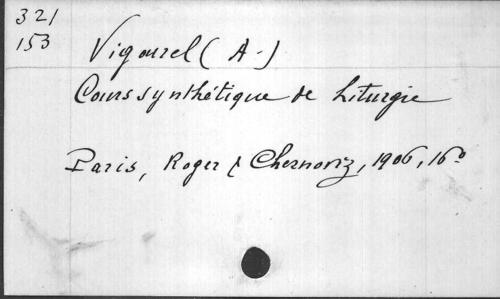 321
153
Vigourel (A.)
Cours synthétique de Liturgie
Paris, Roger & Chernoviz, 1906, 16°